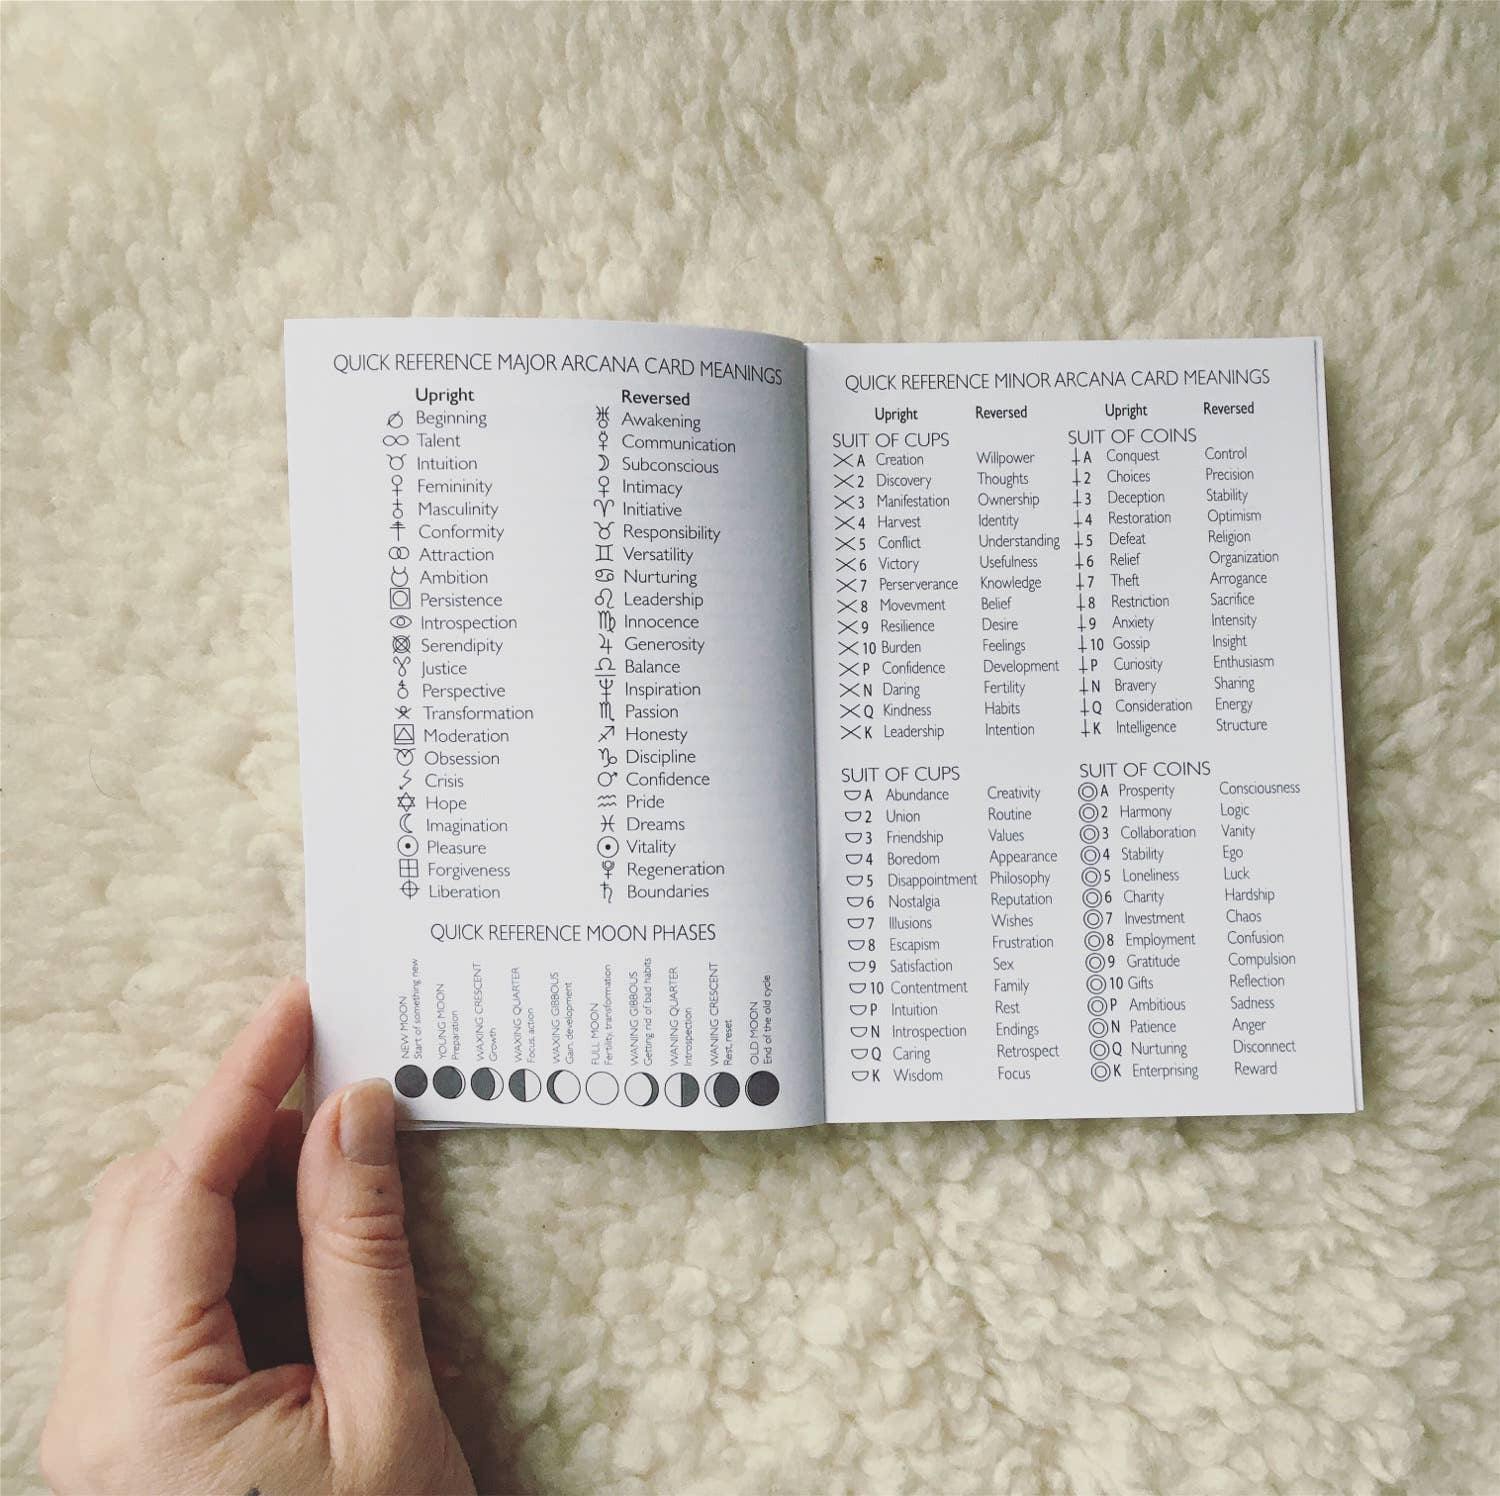 QUICK REFERENCE MAJOR ARCANA CARD MEANINGS
Upright Reversed
Beginning Awakening
Talent Communication
Intuition Subconscious
Femininity Intimacy
Masculinity Initiative
Conformity Responsibility
Attraction Versatility
Ambition Nurturing
Persistence Leadership
Introspection Innocence
Serendipity Generosity
Justice Balance
Perspective Inspiration
Transformation Passion
Moderation Honesty
Obsession Discipline
Crisis Confidence
Hope Pride
Imagination Dreams
Pleasure Vitality
Forgiveness Regeneration
Liberation Boundaries
QUICK REFERENCE MOON PHASES
NEW MOON
Start of something new
YOUNG MOON
Preparation
WAXING CRESCENT
Growth
WAXING QUARTER
Focus, action
WAXING GIBBOUS
Gain, development
FULL MOON
Fertility, transformation
WANING GIBBOUS
Getting rid of bad habits
WANING QUARTER
Introspection
WANING CRESCENT
Rest, reset
OLD MOON
End of the old cycle
QUICK REFERENCE MINOR ARCANA CARD MEANINGS
Upright Reversed Upright Reversed
SUIT OF CUPS SUIT OF COINS
A Creation Willpower A Conquest Control
2 Discovery Thoughts 2 Choices Precision
3 Manifestation Ownership 3 Deception Stability
4 Harvest Identity 4 Restoration Optimism
5 Conflict Understanding 5 Defeat Religion
6 Victory Usefulness 6 Relief Organization
7 Perserverance Knowledge 7 Theft Arrogance
8 Movevment Belief 8 Restriction Sacrifice
9 Resilience Desire 9 Anxiety Intensity
10 Burden Feelings 10 Gossip Insight
P Confidence Development P Curiosity Enthusiasm
N Daring Fertility N Bravery Sharing
Q Kindness Habits Q Consideration Energy
K Leadership Intention K Intelligence Structure
SUIT OF CUPS SUIT OF COINS
A Abundance Creativity A Prosperity Consciousness
2 Union Routine 2 Harmony Logic
3 Friendship Values 3 Collaboration Vanity
4 Boredom Appearance 4 Stability Ego
5 Disappointment Philosophy 5 Loneliness Luck
6 Nostalgia Reputation 6 Charity Hardship
7 Illusions Wishes 7 Investment Chaos
8 Escapism Frustration 8 Employment Confusion
9 Satisfaction Sex 9 Gratitude Compulsion
10 Contentment Family 10 Gifts Reflection
P Intuition Rest P Ambitious Sadness
N Introspection Endings N Patience Anger
Q Caring Retrospect Q Nurturing Disconnect
K Wisdom Focus K Enterprising Reward